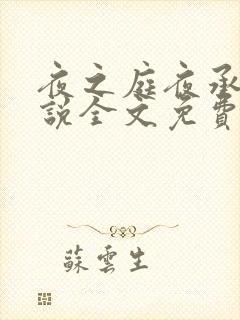 夜之庭夜承
說全文免費
蘇雲生